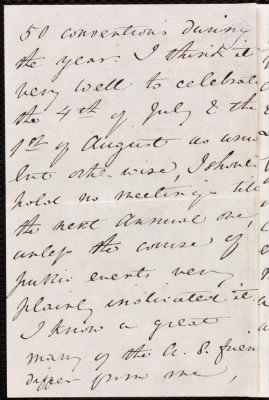 50 conventions during
the year. I think it
very well to celebrate
the 4th of July & the
1st of August as usu
but other wise, I shoul
hold no meetings till
the next annual one,
unless the course of
public events very
plainly indicated it.
I know a great
many of the A. S. frien
differ from me,